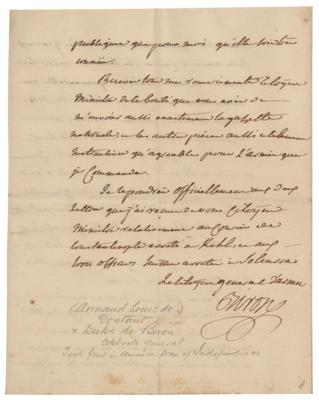 publique que pour moi qu'elle soit bien
connue.
Recevez tous mes remerciements Citoyen
Ministre de la bonté que vous avez de
m'envoyer aussi exactement la gazette
nationale, et les autres pièces aussi
instructives qu'agréables pour l'armée que
je Commande.
Je répondrai officiellement aux deux
lettres que j'ai reçues de vous Citoyen
Ministre relativement au Courier de
Constantinople arrêté à Kehl, et aux
trois officiers arrêtés à
Le Citoyen général d'armée
Biron
(Armand Louis de
Gontaut
& Duke de Biron
Celebrate General
Took part in American War of Independence